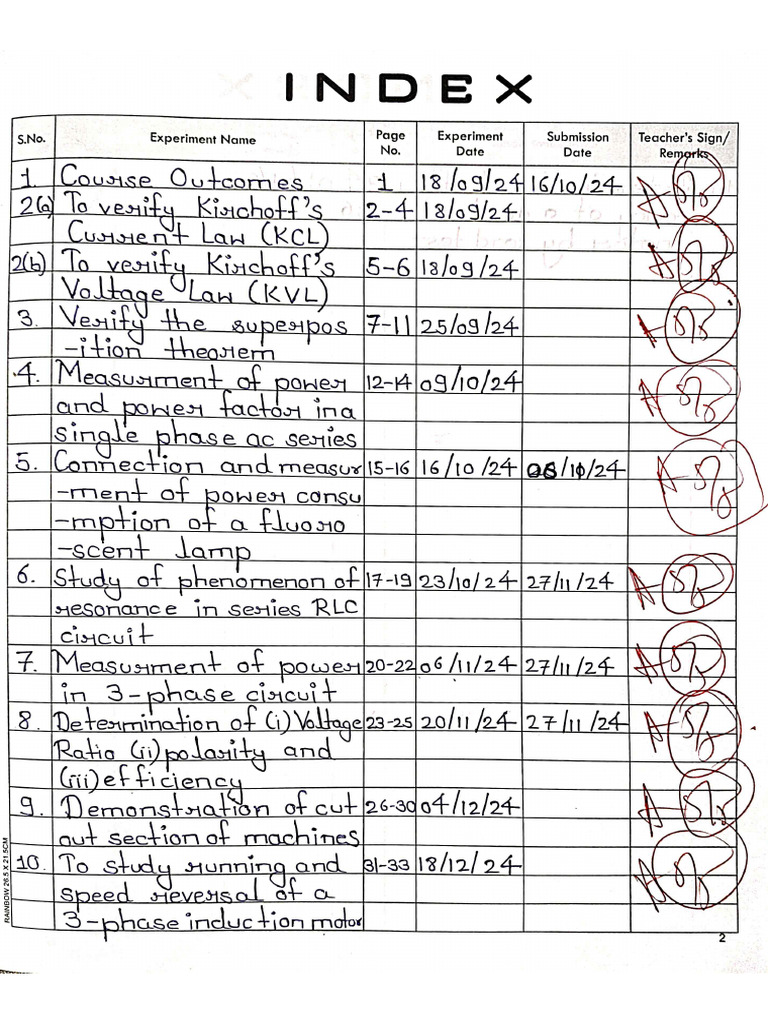 INDEX
S.No. Experiment Name Page No. Experiment Date Submission Date Teacher's Sign/ Remarks
1. Course Outcomes 1 18/09/24 16/10/24 A
2(a) To verify Kirchoff's 2-4 18/09/24
Current Law (KCL)
2(b) To verify Kirchoff's 5-6 18/09/24 A
Voltage Law (KVL)
3. Verify the superpos 7-11 25/09/24 A
-ition theorem
4. Measurment of power 12-14 09/10/24 A
and power factor in a
single phase ac series
5. Connection and measur 15-16 16/10/24 06/10/24 A
-ment of power consu
-mption of a fluoro
-scent lamp
6. Study of phenomenon of 17-19 23/10/24 27/11/24 A
resonance in series RLC
circuit
7. Measurment of power 20-22 06/11/24 27/11/24 A
in 3-phase circuit
8. Determination of (i) Voltage 23-25 20/11/24 27/11/24 A
Ratio (ii) polarity and
(iii) efficiency
9. Demonstration of cut 26-30 04/12/24 A
out section of machines
10. To study running and 31-33 18/12/24 A
speed reversal of a
3-phase induction motor
RAINBOW 26.5 X 21.5CM
2